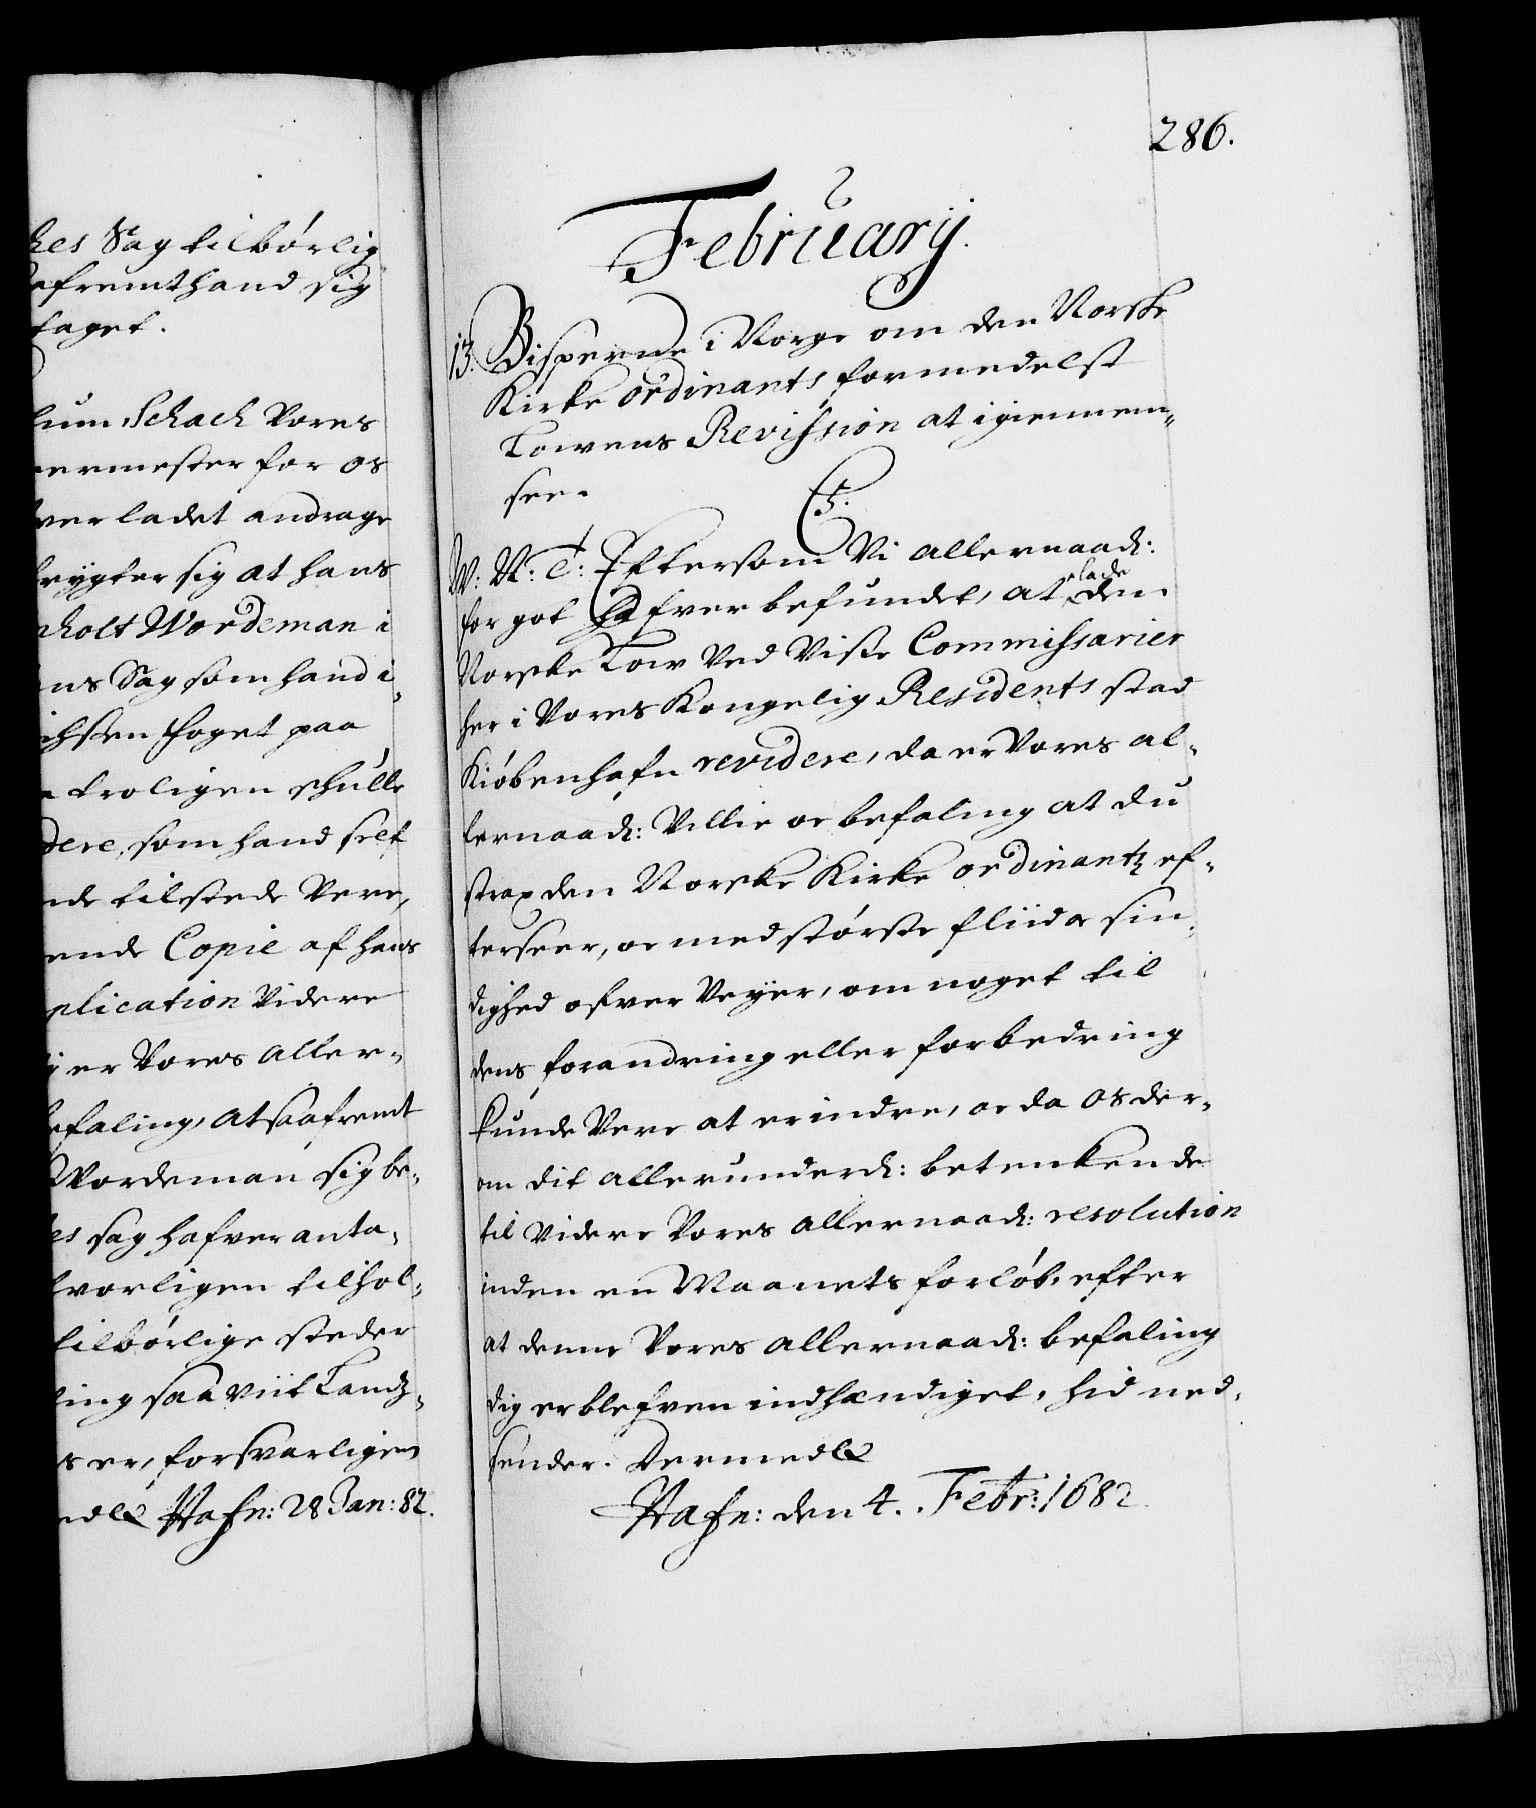 hes Sag tilbørlig
efremt hand sig
taget.
Schach Vores
ermester for os
ver ladet andrage
frygter sig at hans
holt Wordeman i
ns Sag som hand i
ichsen foget paa
troligen skulle
dere, som hand self
nde tilstede Vere,
ende Copie af hans
plication Videre
er Vores aller-
efaling, at saafremt
Wordeman sig be-
es sag hafver anta-
vorligen tilhol-
tilbørlige steder
ting saa viit Landz-
s er, forsvarligen
edl Hafn: 28 Jan: 82.
286.
Februarij.
13. Bisperne i Norge om den Norske
Kirke ordinants formedelst
Lowens Revission at igiennem-
see.
C5.
V: N: T: Eftersom Vi allernaad:
for got hafver befundet, at lade den
Norske Low Ved Visse Commissarier
her i Vores Kongelig Residents stad
Kiøbenhafn revidere, da er Vores al-
lernaad: Villie oc befaling at du
strax den Norske Kirke ordinantz ef-
terseer, oc med største fliid oc sin-
dighed ofver Veyer, om noget til
dens forandring eller forbedring
kunde Vere at erindre, oc da os der-
om dit allerunderd: betenkende
til Videre Vores allernaad: resolution
inden en Maanets forløb, efter
at denne Vores allernaad: befaling
dig er blefven indhændiget, hid ned-
sender. Dermedl
Hafn: den 4. Febr: 1682